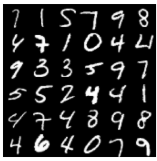 7 1 5 7 9 8
4 7 1 0 4 4
9 3 3 5 9 7
5 5 2 4 4 1
4 7 4 8 9 8
4 6 4 0 7 9